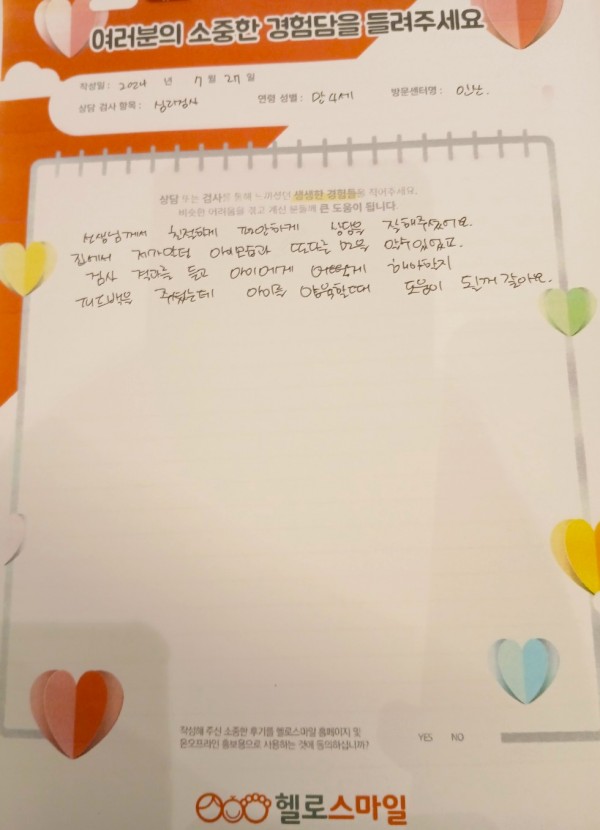 여러분의 소중한 경험담을 들려주세요
작성일 : 2024 년 7 월 27 일
상담 검사 항목 : 심리검사 연령 성별 : 만 4세 방문센터명 : 일산.
상담 또는 검사를 통해 느끼셨던 생생한 경험들을 적어주세요.
비슷한 어려움을 겪고 계신 분들께 큰 도움이 됩니다.
선생님께서 친절하게 편안하게 상담을 잘해주셨어요.
집에서 제가 알던 아이모습과 또다른 면을 알수있었고
검사 결과를 듣고 아이에게 어떻게 해야할지
피드백을 주셨는데 아이를 양육할때 도움이 될꺼 같아요.
작성해 주신 소중한 후기를 헬로스마일 홈페이지 및
온오프라인 홍보용으로 사용하는 것에 동의하십니까? YES NO
헬로스마일